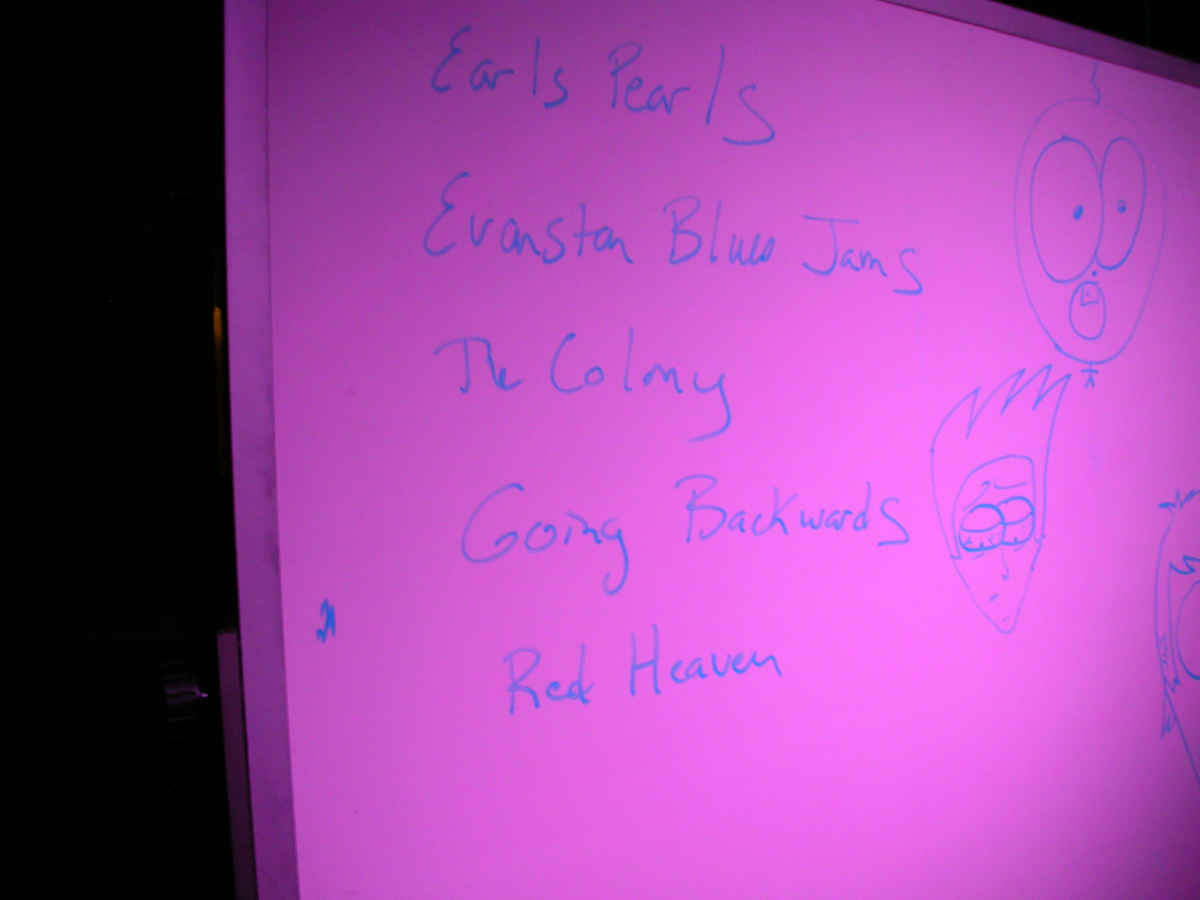 Earls Pearls
Evanston Blues Jams
The Colony
Going Backwards
Red Heaven